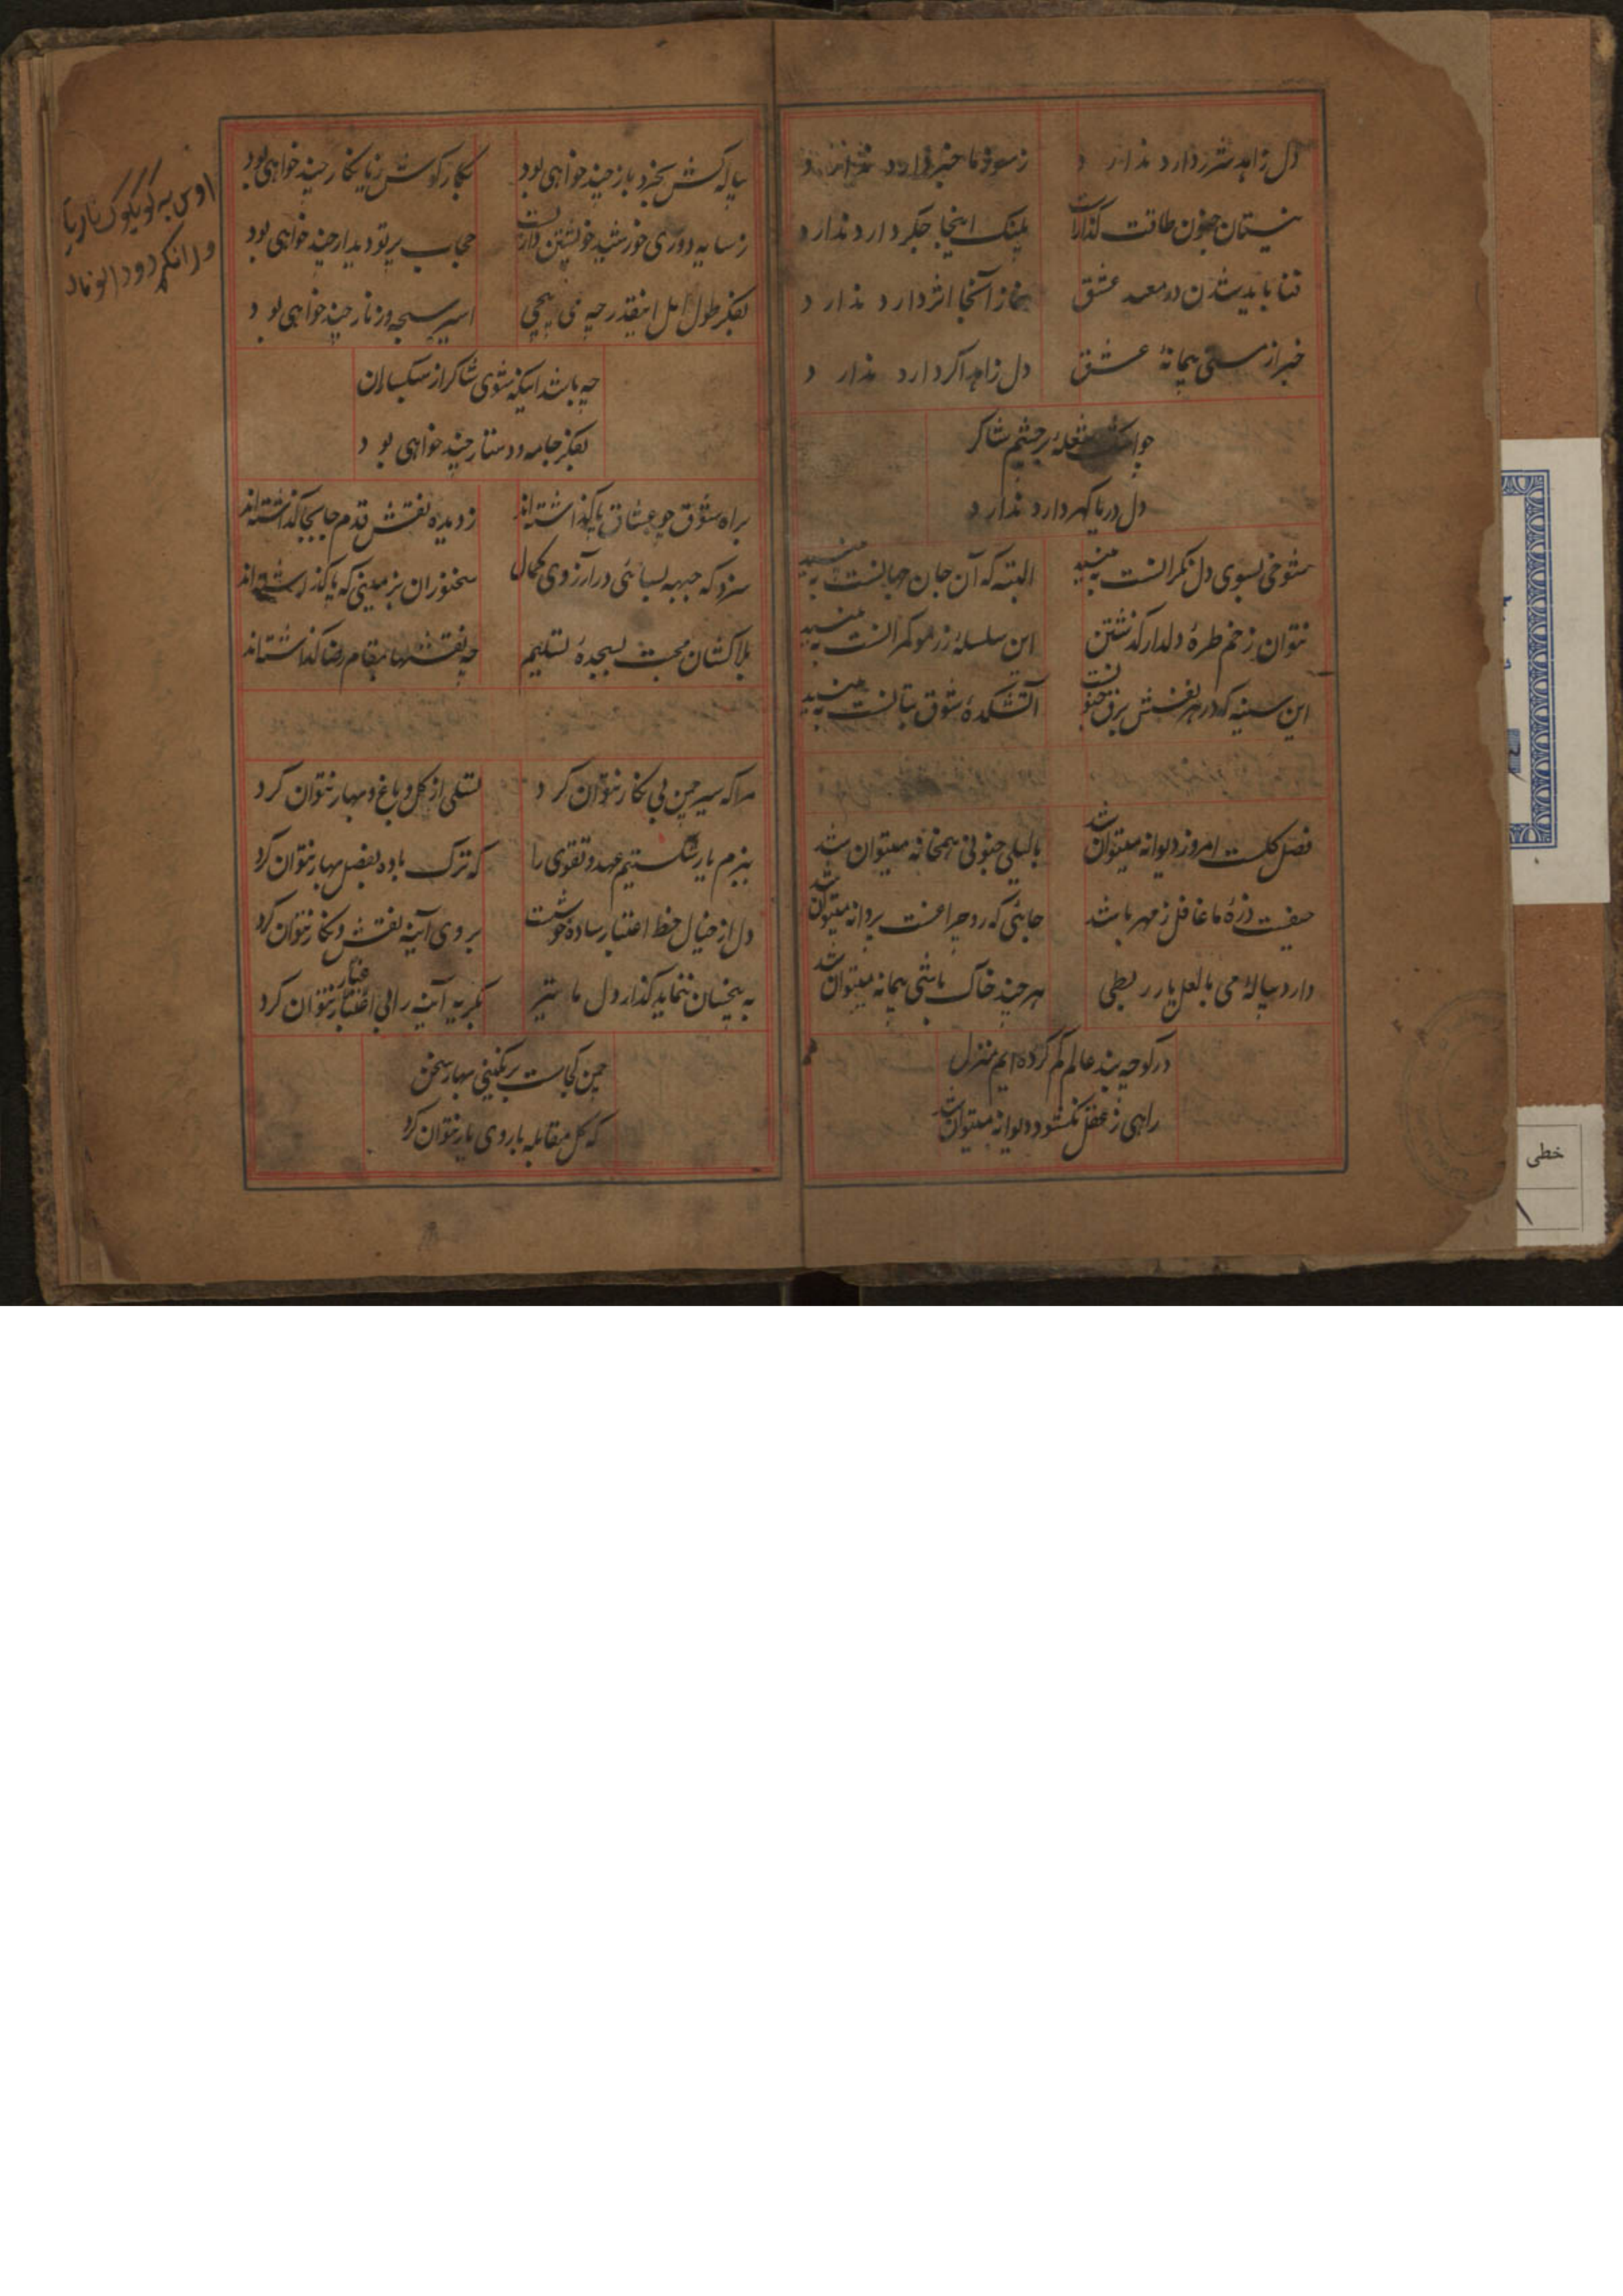 دل زاهد شرر دارد ندارد
ز سوز ما خبر دارد ندارد
نیستان جنون طاقت گدازست
پلنک اینجا جکر دارد ندارد
فنا باید شدن در معبد عشق
نماز آنجا اثر دارد ندارد
خبر از مستی پیمانهٔ عشق
دل زاهد اکر دارد ندارد
جو اشک شعله بر چشم شاکر
دل دریا کهر دارد ندارد
شوخی بسوی دل نکرانست به بینید
البته که آن جان جهانست به بینید
نتوان ز خم طرهٔ دلدار کذشتن
این سلسله زر مو کمرانست به بینید
این سینه که در هر نفسش برق جنونست
آتشکدهٔ شوق بتانست به بینید
فصل کلست امروز دیوانه میتوان شد
با لیلی جنونی همخانه میتوان شد
حیفست ذرهٔ ما غافل ز مهر باشد
جائی که رو چراغست پروانه میتوان شد
دارد پیالهٔ می با لعل یار ربطی
هر چند خاک باشی پیمانه میتوان شد
در کوچه بند عالم کم کرده ایم منزل
راهی ز عقل نکشود دیوانه میتوان شد
پیاله کش بخرد باز چند خواهی بود
بکار کوش ز نا بکار چند خواهی بود
ز سایه دوری خورشید خویشتن دارست
حجاب پرتو دیدار چند خواهی بود
بفکر طول امل اینقدر چه می پیچی
اسیر سبحه و زنار چند خواهی بود
چه باشد اینکه شوی شاکر از سبکساران
بفکر جامه و دستار چند خواهی بود
براه شوق چو عشاق پا کذاشته اند
ز دیده نقش قدم جابجا کذاشته اند
سزد که جبهه بسائی در آرزوی کمال
سخنوران بزمینی که پا کذاشته اند
بلاکشان محبت بسجدهٔ تسلیم
چه نقشها بمقام رضا کذاشته اند
مرا که سیر چمن بی نکار نتوان کرد
تسلی از کل و باغ و بهار نتوان کرد
ببزم یار شکستیم عهد و تقوی را
که ترک باده بفصل بهار نتوان کرد
دل از خیال خط اعتبار ساده خوشست
بروی آینه نقش و نکار نتوان کرد
به هیچسان ننماید کذار دل ما
بکریه آینه را بی غبار نتوان کرد
چمن کجاست برنکینی بهار سخن
که کل مقابله با روی یار نتوان کرد
خطی